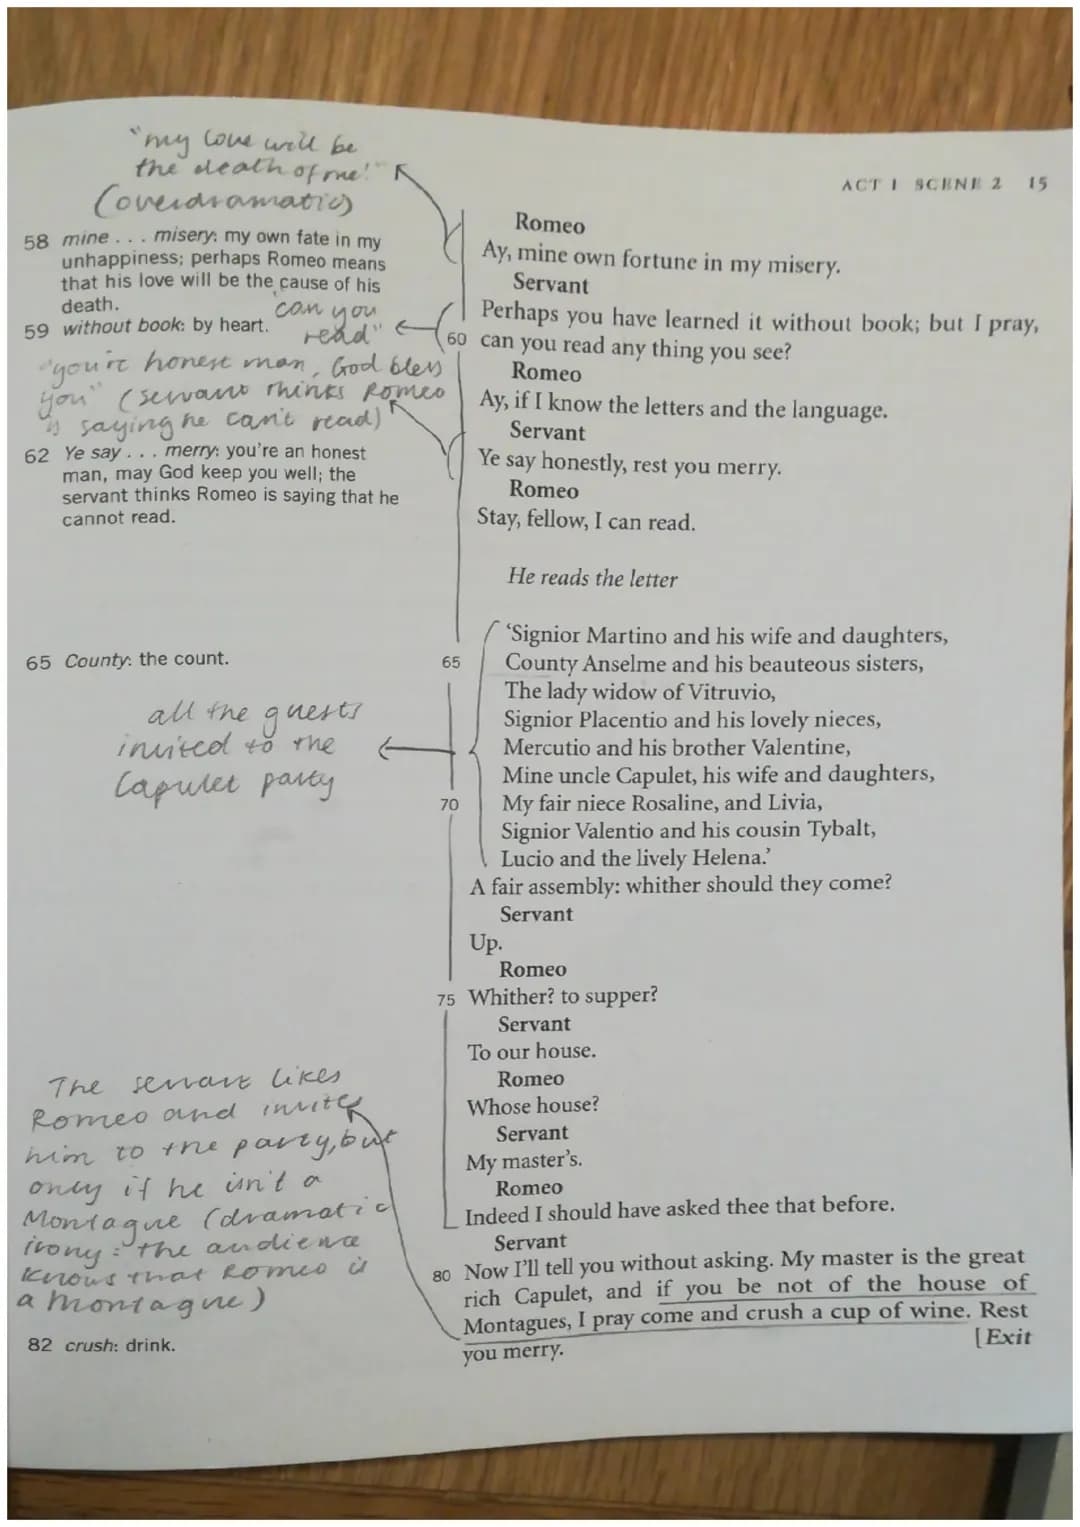 "my love will be
the death of me!"
(overdramatic)
58 mine . . . misery: my own fate in my
unhappiness; perhaps Romeo means
that his love will be the cause of his
death.
"can you
read"
59 without book: by heart.
"you're honest man, God bless
you" (servant thinks Romeo
is saying he can't read)
62 Ye say . . . merry: you're an honest
man, may God keep you well; the
servant thinks Romeo is saying that he
cannot read.
65 County: the count.
all the guests
invited to the
Capulet party
The servant likes
Romeo and invites
him to the party, but
only if he isn't a
Montague (dramatic
irony: the audience
knows that Romeo is
a Montague)
82 crush: drink.
ACT 1 SCENE 2 15
Romeo
Ay, mine own fortune in my misery.
Servant
Perhaps you have learned it without book; but I pray,
60 can you read any thing you see?
Romeo
Ay, if I know the letters and the language.
Servant
Ye say honestly, rest you merry.
Romeo
Stay, fellow, I can read.
He reads the letter
'Signior Martino and his wife and daughters,
65 County Anselme and his beauteous sisters,
The lady widow of Vitruvio,
Signior Placentio and his lovely nieces,
Mercutio and his brother Valentine,
Mine uncle Capulet, his wife and daughters,
70 My fair niece Rosaline, and Livia,
Signior Valentio and his cousin Tybalt,
Lucio and the lively Helena.'
A fair assembly: whither should they come?
Servant
Up.
Romeo
75 Whither? to supper?
Servant
To our house.
Romeo
Whose house?
Servant
My master's.
Romeo
Indeed I should have asked thee that before.
Servant
80 Now I'll tell you without asking. My master is the great
rich Capulet, and if you be not of the house of
Montagues, I pray come and crush a cup of wine. Rest
you merry.
[Exit